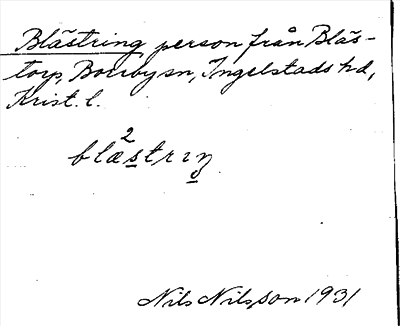 Blästring person från Bläs-
torp, Borrbysn, Ingelstads hd,
Krist. l.
2
blæstrıŋ
Nils Nilsson 1931